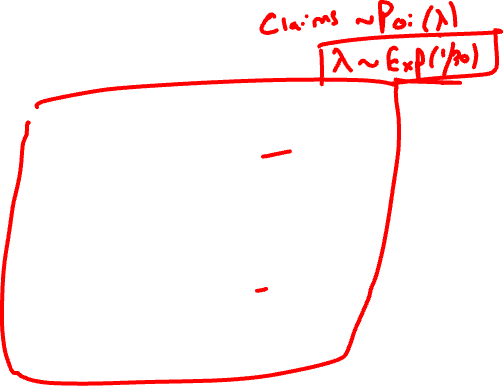 Claims ~Poi(λ)
λ~Exp(1/30)